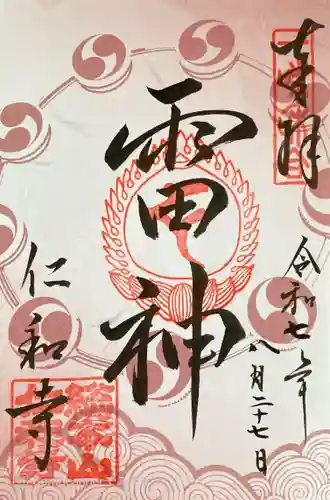 奉拝
令和七年
八月二十七日
雷神
仁和寺